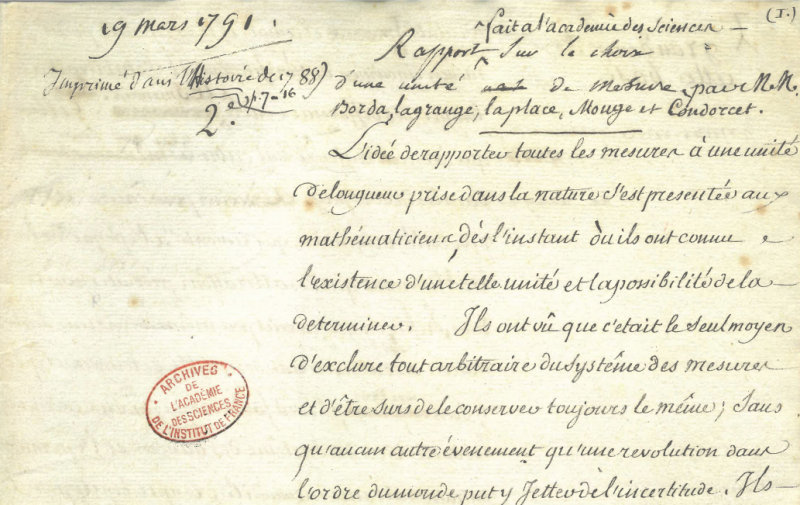 (1.)
19 mars 1791.
fait a l'academie des Sciences
Rapport Sur le choix
Imprimé dans l'Histoire de 1788)
2.e p. 7-16
d'une unité de mesure, par MM.
Borda, lagrange, laplace, Monge et Condorcet.
L'idée de rapporter toutes les mesures à une unité
de longueur prise dans la nature s'est presentée aux
mathématiciens dès l'instant où ils ont connu
l'existence d'une telle unité et la possibilité de la
determiner. Ils ont vû que c'était le seul moyen
d'exclure tout arbitraire du systême des mesures
et d'être surs de le conserver toujours le même; Sans
qu'aucun autre évenement qu'une revolution dans
l'ordre du monde put y Jetter de l'incertitude. Ils
ARCHIVES
DE
L'ACADÉMIE
DES SCIENCES
DE L'INSTITUT DE FRANCE